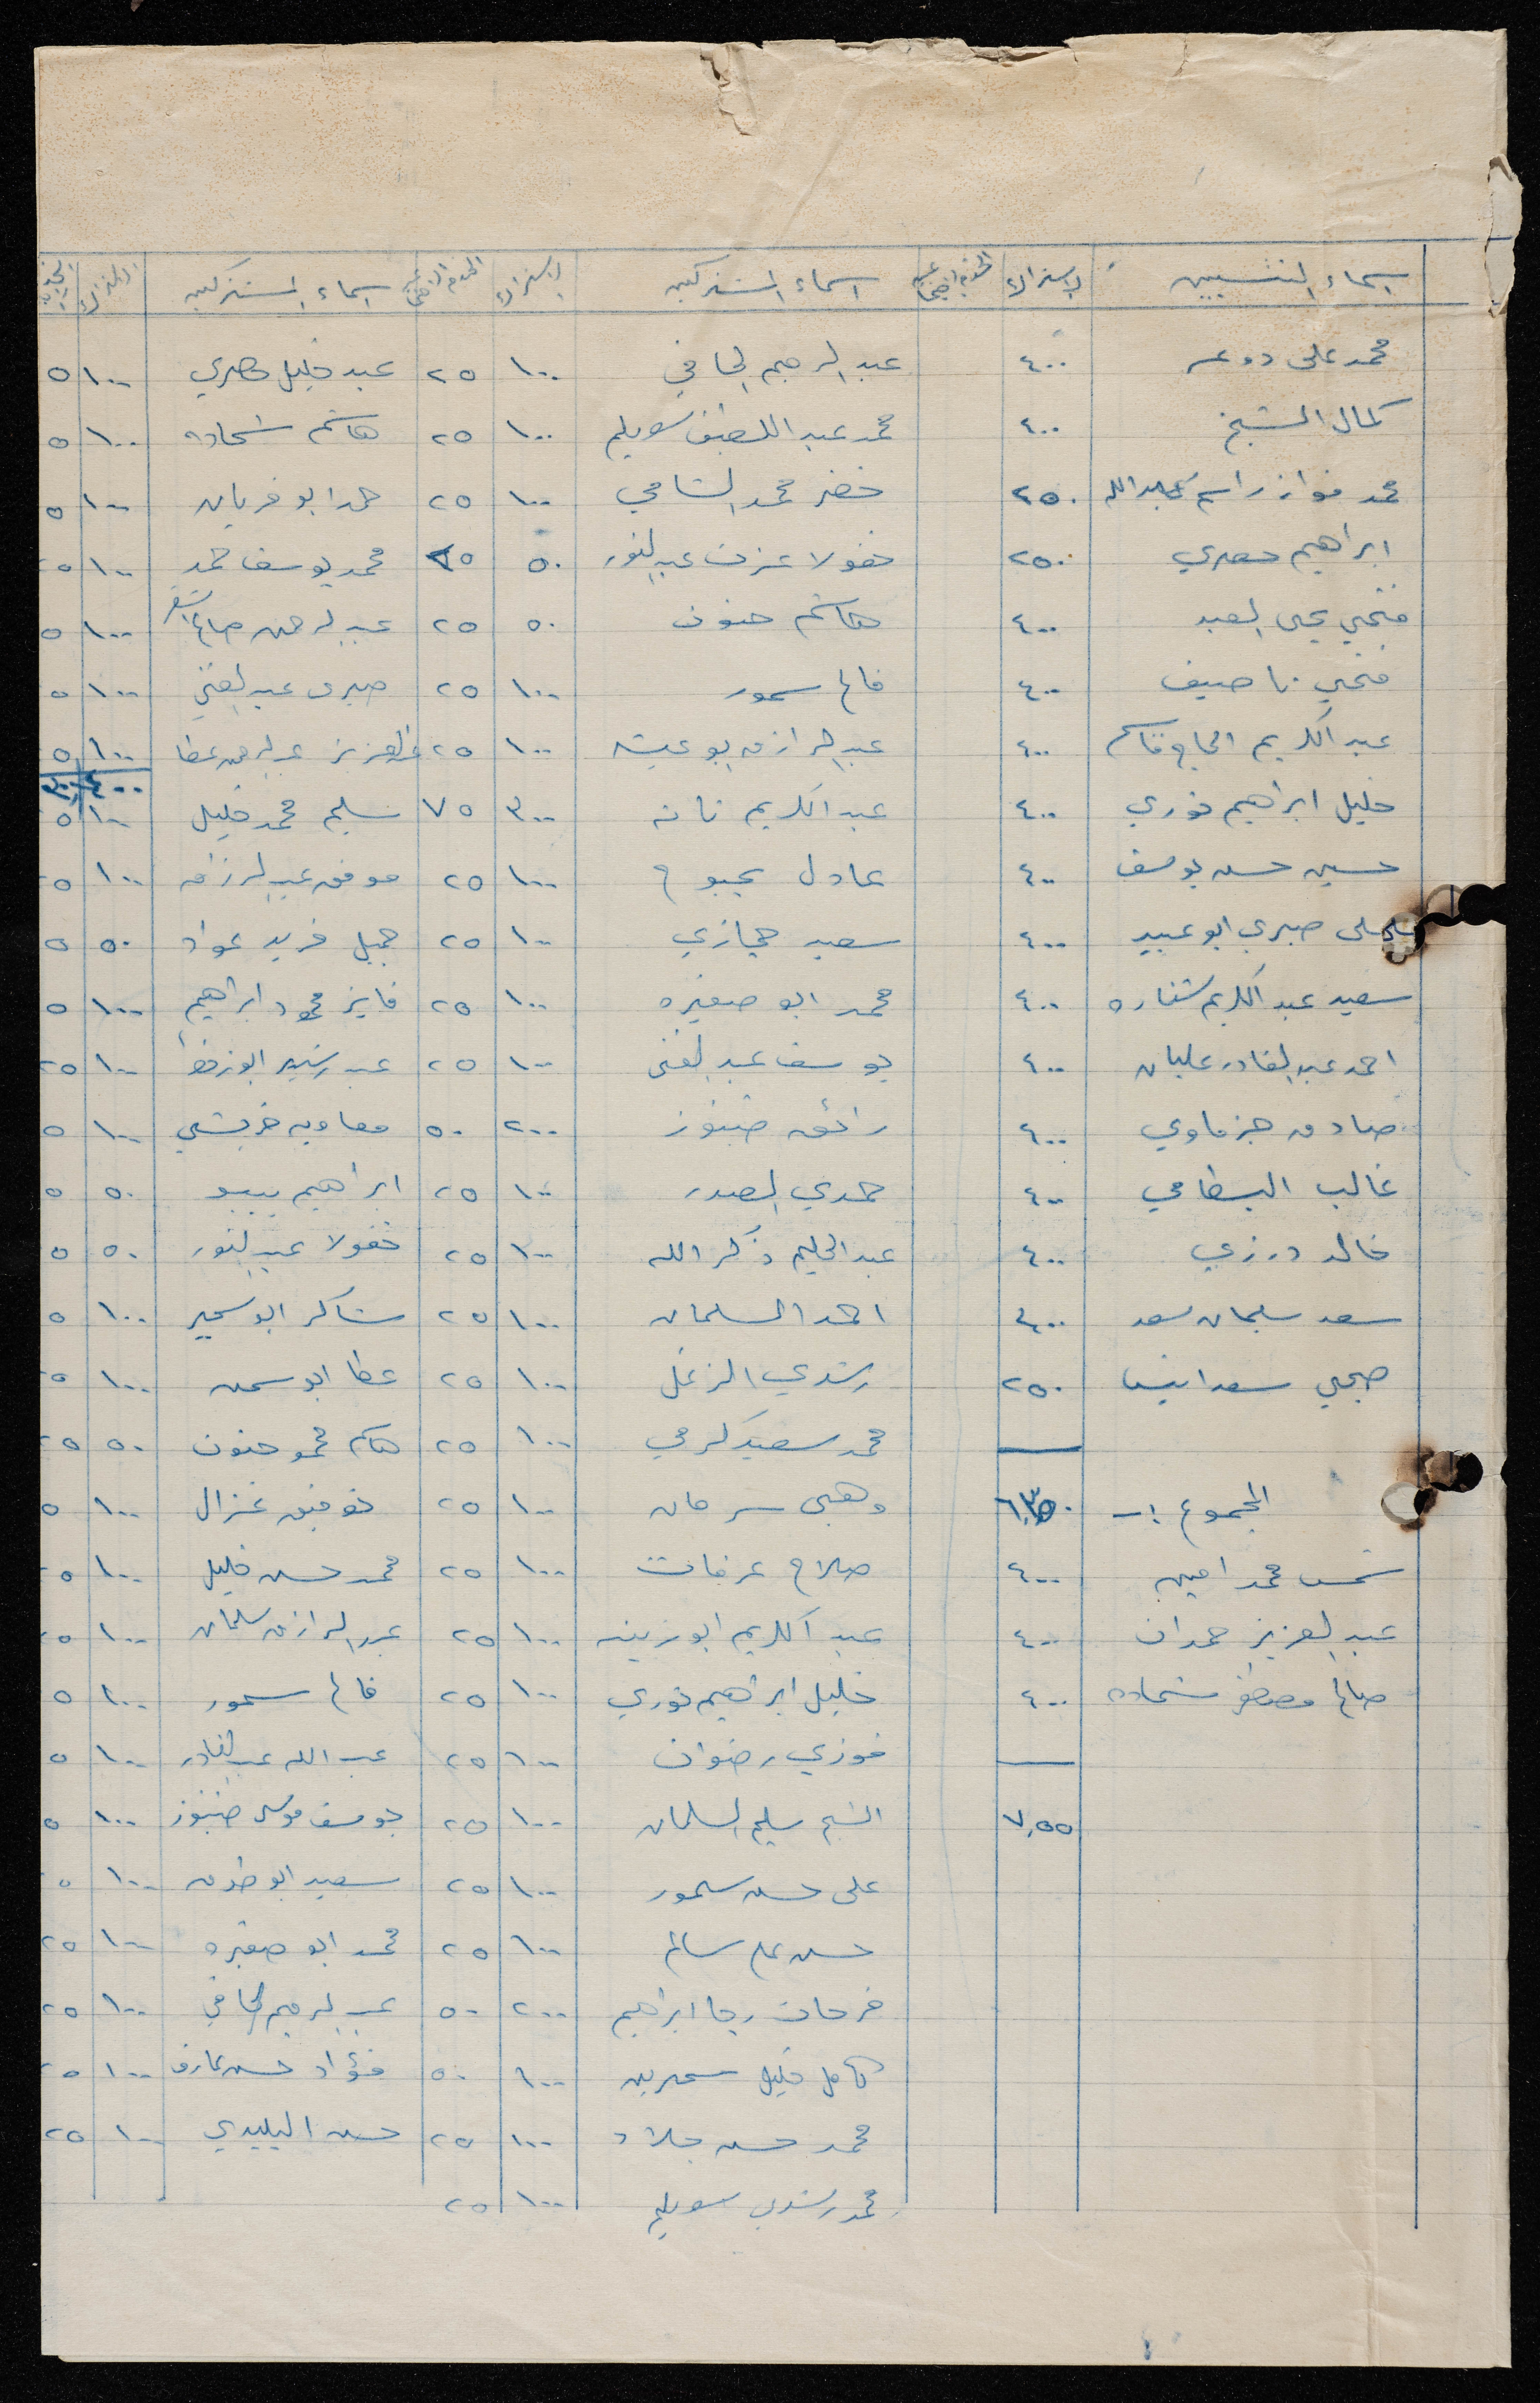 اسماء المنتسبين الاشتراك اسماء المشتركين الاشتراك اسماء المشتركين الاشتراك
محمد علي دوعر ٤٠٠ عبد الرحيم الحافي ١٠٠ ٢٥ عبد خليل مصري ١٠٠ ٥
كمال الشيخ ٤٠٠ محمد عبد اللطيف سويلم ١٠٠ ٢٥ هاشم شحاده ١٠٠ ٥
محمد فواز راسم عبد الله ٢٥٠ خضر محمد الشامي ١٠٠ ٢٥ حمد ابو فربان ١٠٠ ٥
ابراهيم مصري ٢٥٠ نقولا عزت عبد النور ٥٠ ٢٥ محمد يوسف حمد ١٠٠ ٥
فتحي يحيى العبد ٤٠٠ هاشم حنون ٥٠ ٢٥ عبد الرحمن صالح اشقر ١٠٠ ٥
فتحي ناصيف ٤٠٠ فالح سمور ١٠٠ ٢٥ صبري عبد الغني ١٠٠ ٥
عبد الكريم الحاج قاسم ٤٠٠ عبد الرازق ابو عيشه ١٠٠ ٢٥ عبد العزيز عبد الرحمن عطا ١٠٠ ٥
خليل ابراهيم نوري ٤٠٠ عبد الكريم نانه ٣٠٠ ٧٥ سليم محمد خليل ١٠٠ ٥
حسين حسن يوسف ٤٠٠ عادل بحبوح ١٠٠ ٢٥ موفق عبد الرزاق ١٠٠ ٥
صبري ابو عبيد ٤٠٠ سعيد حجازي ١٠٠ ٢٥ جميل فريد عواد ٥٠ ٥
سعيد عبد الكريم شناره ٤٠٠ محمد ابو صغيره ١٠٠ ٢٥ فايز محمود ابراهيم ١٠٠ ٥
احمد عبد القادر عليان ٤٠٠ يوسف عبد الغني ١٠٠ ٢٥ عبد رشيد ابو ١٠٠ ٢٥
صادق جزماوي ٤٠٠ رائق ضبنوز ٢٠٠ ٥٠ معاويه خريشي ١٠٠ ٥
غالب البسطامي ٤٠٠ حمدي الصدر ١٠٠ ٢٥ ابراهيم بيبو ٥٠ ٥
خالد درزي ٤٠٠ عبد الحليم ذكر الله ١٠٠ ٢٥ نقولا عبد النور ٥٠ ٥
سعد سليمان سعد ٤٠٠ احمد السلمان ١٠٠ ٢٥ شاكر ابو سمير ١٠٠ ٥
صبحي سعد انيس ٢٥٠ رشدي الزغل ١٠٠ ٢٥ عطا ابو سمن ١٠٠ ٥
محمد سعيد كرمي ١٠٠ ٢٥ هاشم محمود حنون ٥٠ ٢٥
المجموع :- ٦,٣٥٠ وهبي سرحان ١٠٠ ٢٥ توفيق غزال ١٠٠ ٥
شمس محمد امين ٤٠٠ صلاح عرفات ١٠٠ ٢٥ محمد حسن خليل ١٠٠ ٥
عبد العزيز حمدان ٤٠٠ عبد الكريم ابو زينه ١٠٠ ٢٥ عبد الرازق سلمان ١٠٠ ٥
صالح مصطفى شحاده ٤٠٠ خليل ابراهيم نوري ١٠٠ ٢٥ فالح سمور ١٠٠ ٥
فوزي رضوان ١٠٠ ٢٥ عبد الله عبد القادر ١٠٠ ٥
٧,٥٥ الشيخ سليم السلمان ١٠٠ ٢٥ يوسف موسى ضبنوز ١٠٠ ٥
علي حسن سمور ١٠٠ ٢٥ سعيد ابو طوق ١٠٠ ٥
حسن علي سالم ١٠٠ ٢٥ محمد ابو صغيره ١٠٠ ٢٥
فرحات رجا ابراهيم ٢٠٠ ٥٠ عبد الرحيم الحافي ١٠٠ ٢٥
كامل خليل سمرين ١٠٠ ٥٠ فؤاد حسن عارف ١٠٠ ٢٥
محمد حسن جلاد ١٠٠ ٢٥ حسن البليدي ١٠٠ ٢٥
محمد رشدي سويلم ١٠٠ ٢٥